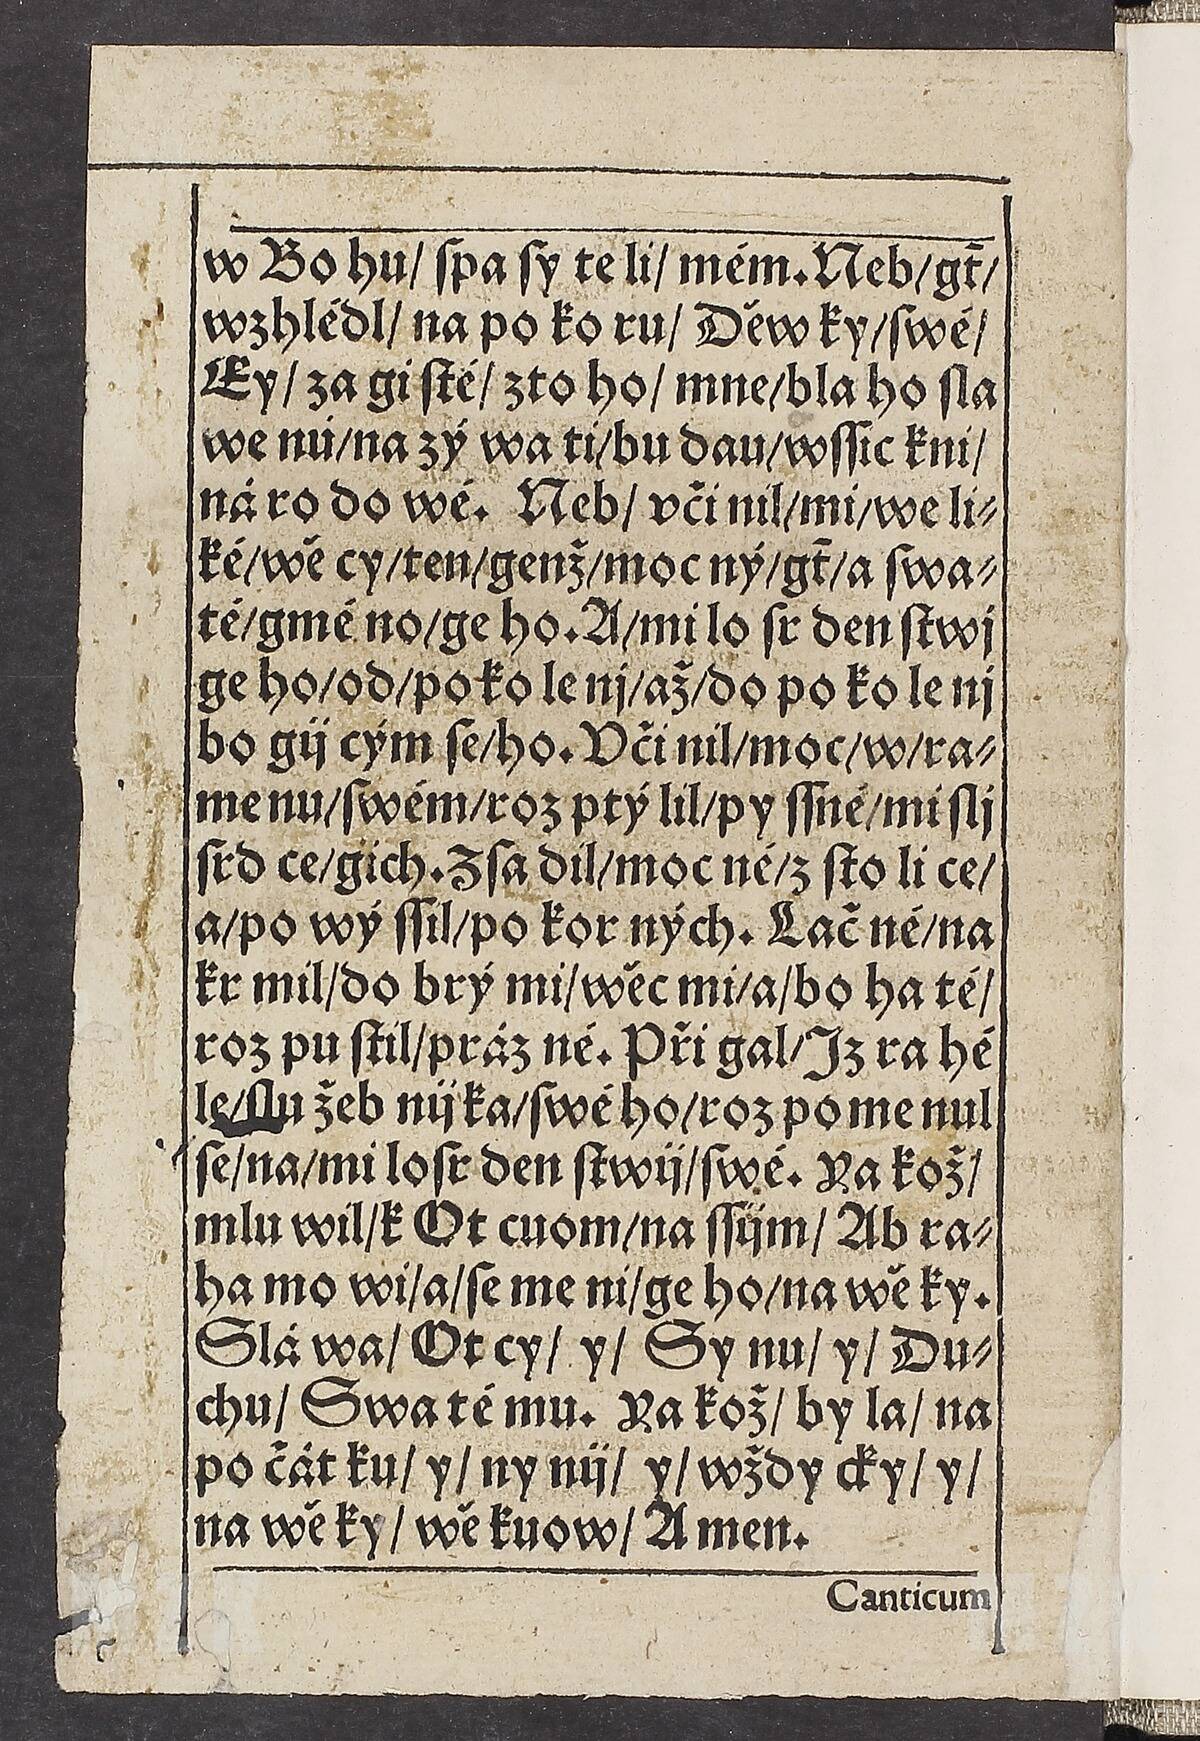 w Bo hu/ ſpa ſy te li/ mém. Neb/gt̄/
wzhlédl/ na po ko ru/ Děw ky/ſwé/
Ey/ za gi ſté/ zto ho/ mne/bla ho ſla
we nú/na zý wa ti/bu dau/wſſic kni/
ná ro do wé. Neb/ vči nil/mi/we li⸗
ké/wě cy/ten/genž/moc ný/gt̄/a ſwa⸗
té/gmé no/ge ho. A/mi lo ſr den ſtwj
ge ho/od/po ko le nj/až/do po ko le nj
bo gij cým ſe/ho. Vči nil/moc/w/ra⸗
me nu/ſwém/roz ptý lil/py ſſné/mi ſlj
ſrd ce/gich. Zſa dil/moc né/z ſto li ce/
a/po wý ſſil/po kor ných. Lač né/na
kr mil/do brý mi/wěc mi/a/bo ha té/
roz pu ſtil/práz né. Při gal/Jz ra hé
le/ſlu žeb nij ka/ſwé ho/roz po me nul
ſe/na/mi loſr den ſtwij/ſwé. Ya kož/
mlu wil/k Ot cuom/na ſſijm/ Ab ra⸗
ha mo wi/a/ſe me ni/ge ho/na wě ky.
Slá wa/ Ot cy/ y/ Sy nu/ y/ Du⸗
chu/ Swa té mu. Ya kož/ by la/ na
po čát ku/ y/ ny nij/ y/ wždy cky/ y/
na wě ky/ wě kuow/ A men.
Canticum